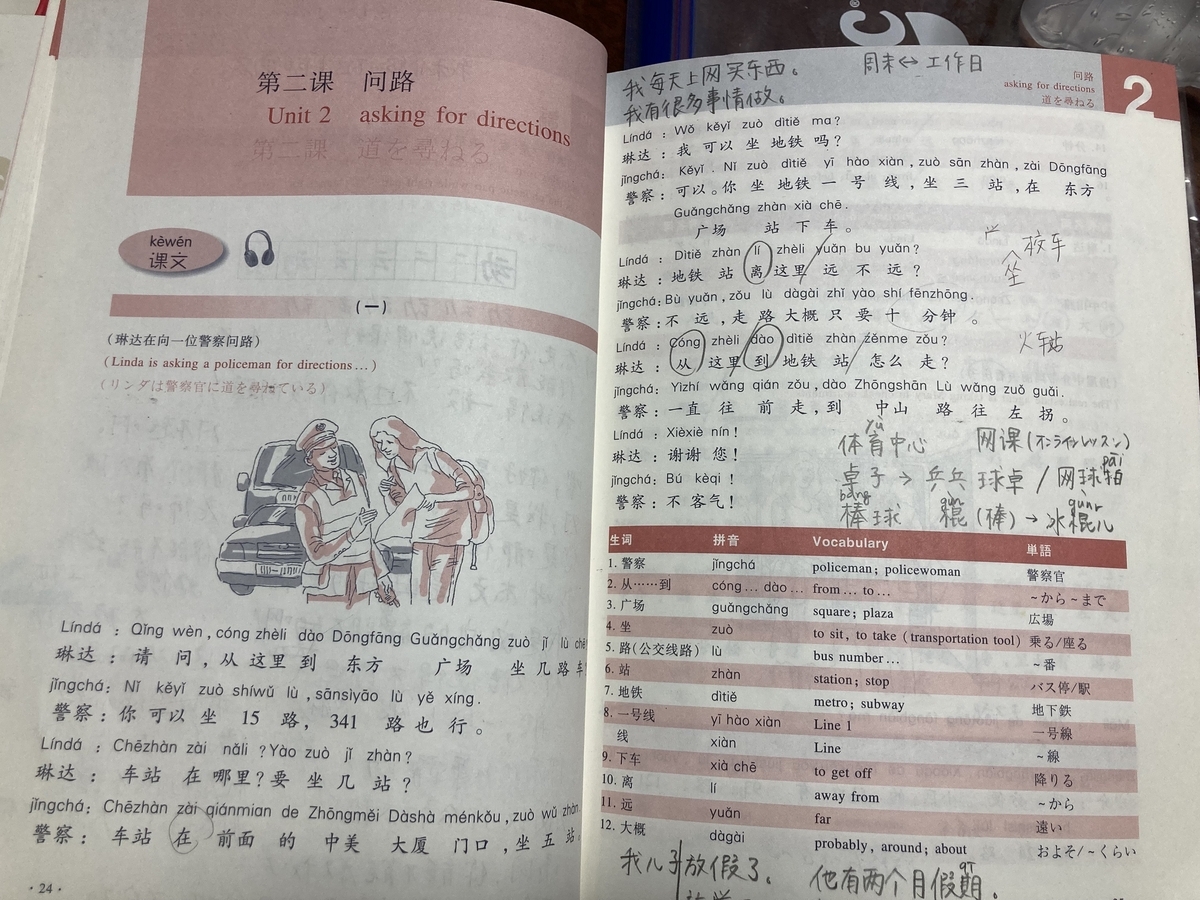 第二课 问路
Unit 2 asking for directions
第二課 道を尋ねる
kèwén
课文
(一)
(琳达在向一位警察问路)
(Linda is asking a policeman for directions…)
(リンダは警察官に道を尋ねている)
Líndá : Qǐng wèn, cóng zhèli dào Dōngfāng Guǎngchǎng zuò jǐ lù
琳达 : 请 问 , 从 这里 到 东方 广场 坐 几 路
jǐngchá: Nǐ kěyǐ zuò shíwǔ lù , sānsìyāo lù yě xíng.
警察 : 你 可以 坐 15 路, 341 路 也 行 。
Líndá : Chēzhàn zài nǎli ? Yào zuò jǐ zhàn?
琳达 : 车站 在 哪里? 要 坐 几 站 ?
jǐngchá: Chēzhàn zài qiánmian de Zhōngměi Dàshà ménkǒu , zuò wǔ zhàn
警察 : 车站 在 前面 的 中美 大厦 门口 , 坐 五 站
· 24 ·
我每天上网买东西。
周末↔工作日
我有很多事情做。
问路
asking for directions
道を尋ねる
2
Líndá : Wǒ kěyǐ zuò dìtiě ma?
琳达 : 我 可以 坐 地铁 吗?
jǐngchá: Kěyǐ . Nǐ zuò dìtiě yī hào xiàn , zuò sān zhàn , zài Dōngfāng
警察 : 可以。你 坐 地铁 一 号 线 , 坐 三 站 , 在 东方
Guǎngchǎng zhàn xià chē .
广场 站 下 车 。
Líndá : Dìtiě zhàn lí zhèli yuǎn bu yuǎn?
琳达 : 地铁 站 离 这里 远 不 远 ?
校车
坐
jǐngchá: Bù yuǎn , zǒu lù dàgài zhǐ yào shí fēnzhōng .
警察 : 不 远 , 走 路 大概 只 要 十 分钟 。
Líndá : Cóng zhèli dào dìtiě zhàn zěnme zǒu?
琳达 : 从 这里 到 地铁 站 怎么 走?
火车站
jǐngchá: Yìzhí wǎng qián zǒu , dào Zhōngshān Lù wǎng zuǒ guǎi.
警察 : 一直 往 前 走 , 到 中山 路 往 左 拐 。
Líndá : Xièxiè nín !
琳达 : 谢谢 您!
jǐngchá: Bú kèqi !
警察 : 不 客气 !
yù
体育中心 网课(オンラインレッスン)
pāi
卓子 → 乒乓球桌 / 网球拍
bàng gùn gùnr
棒球 棍(棒) → 冰棍儿
生词 拼音 Vocabulary 単語
1. 警察 jǐngchá policeman; policewoman 警察官
2. 从……到 cóng… dào… from… to… ~から~まで
3. 广场 guǎngchǎng square; plaza 広場
4. 坐 zuò to sit, to take (transportation tool) 乗る/座る
5. 路(公交线路) lù bus number… ~番
6. 站 zhàn station; stop バス停/駅
7. 地铁 dìtiě metro; subway 地下鉄
8. 一号线 yī hào xiàn Line 1 一号線
线 xiàn Line ~線
9. 下车 xià chē to get off 降りる
10. 离 lí away from ~から
11. 远 yuǎn far 遠い
12. 大概 dàgài probably, around; about およそ/~くらい
我儿子放假了。 他有两个月假期。
qī